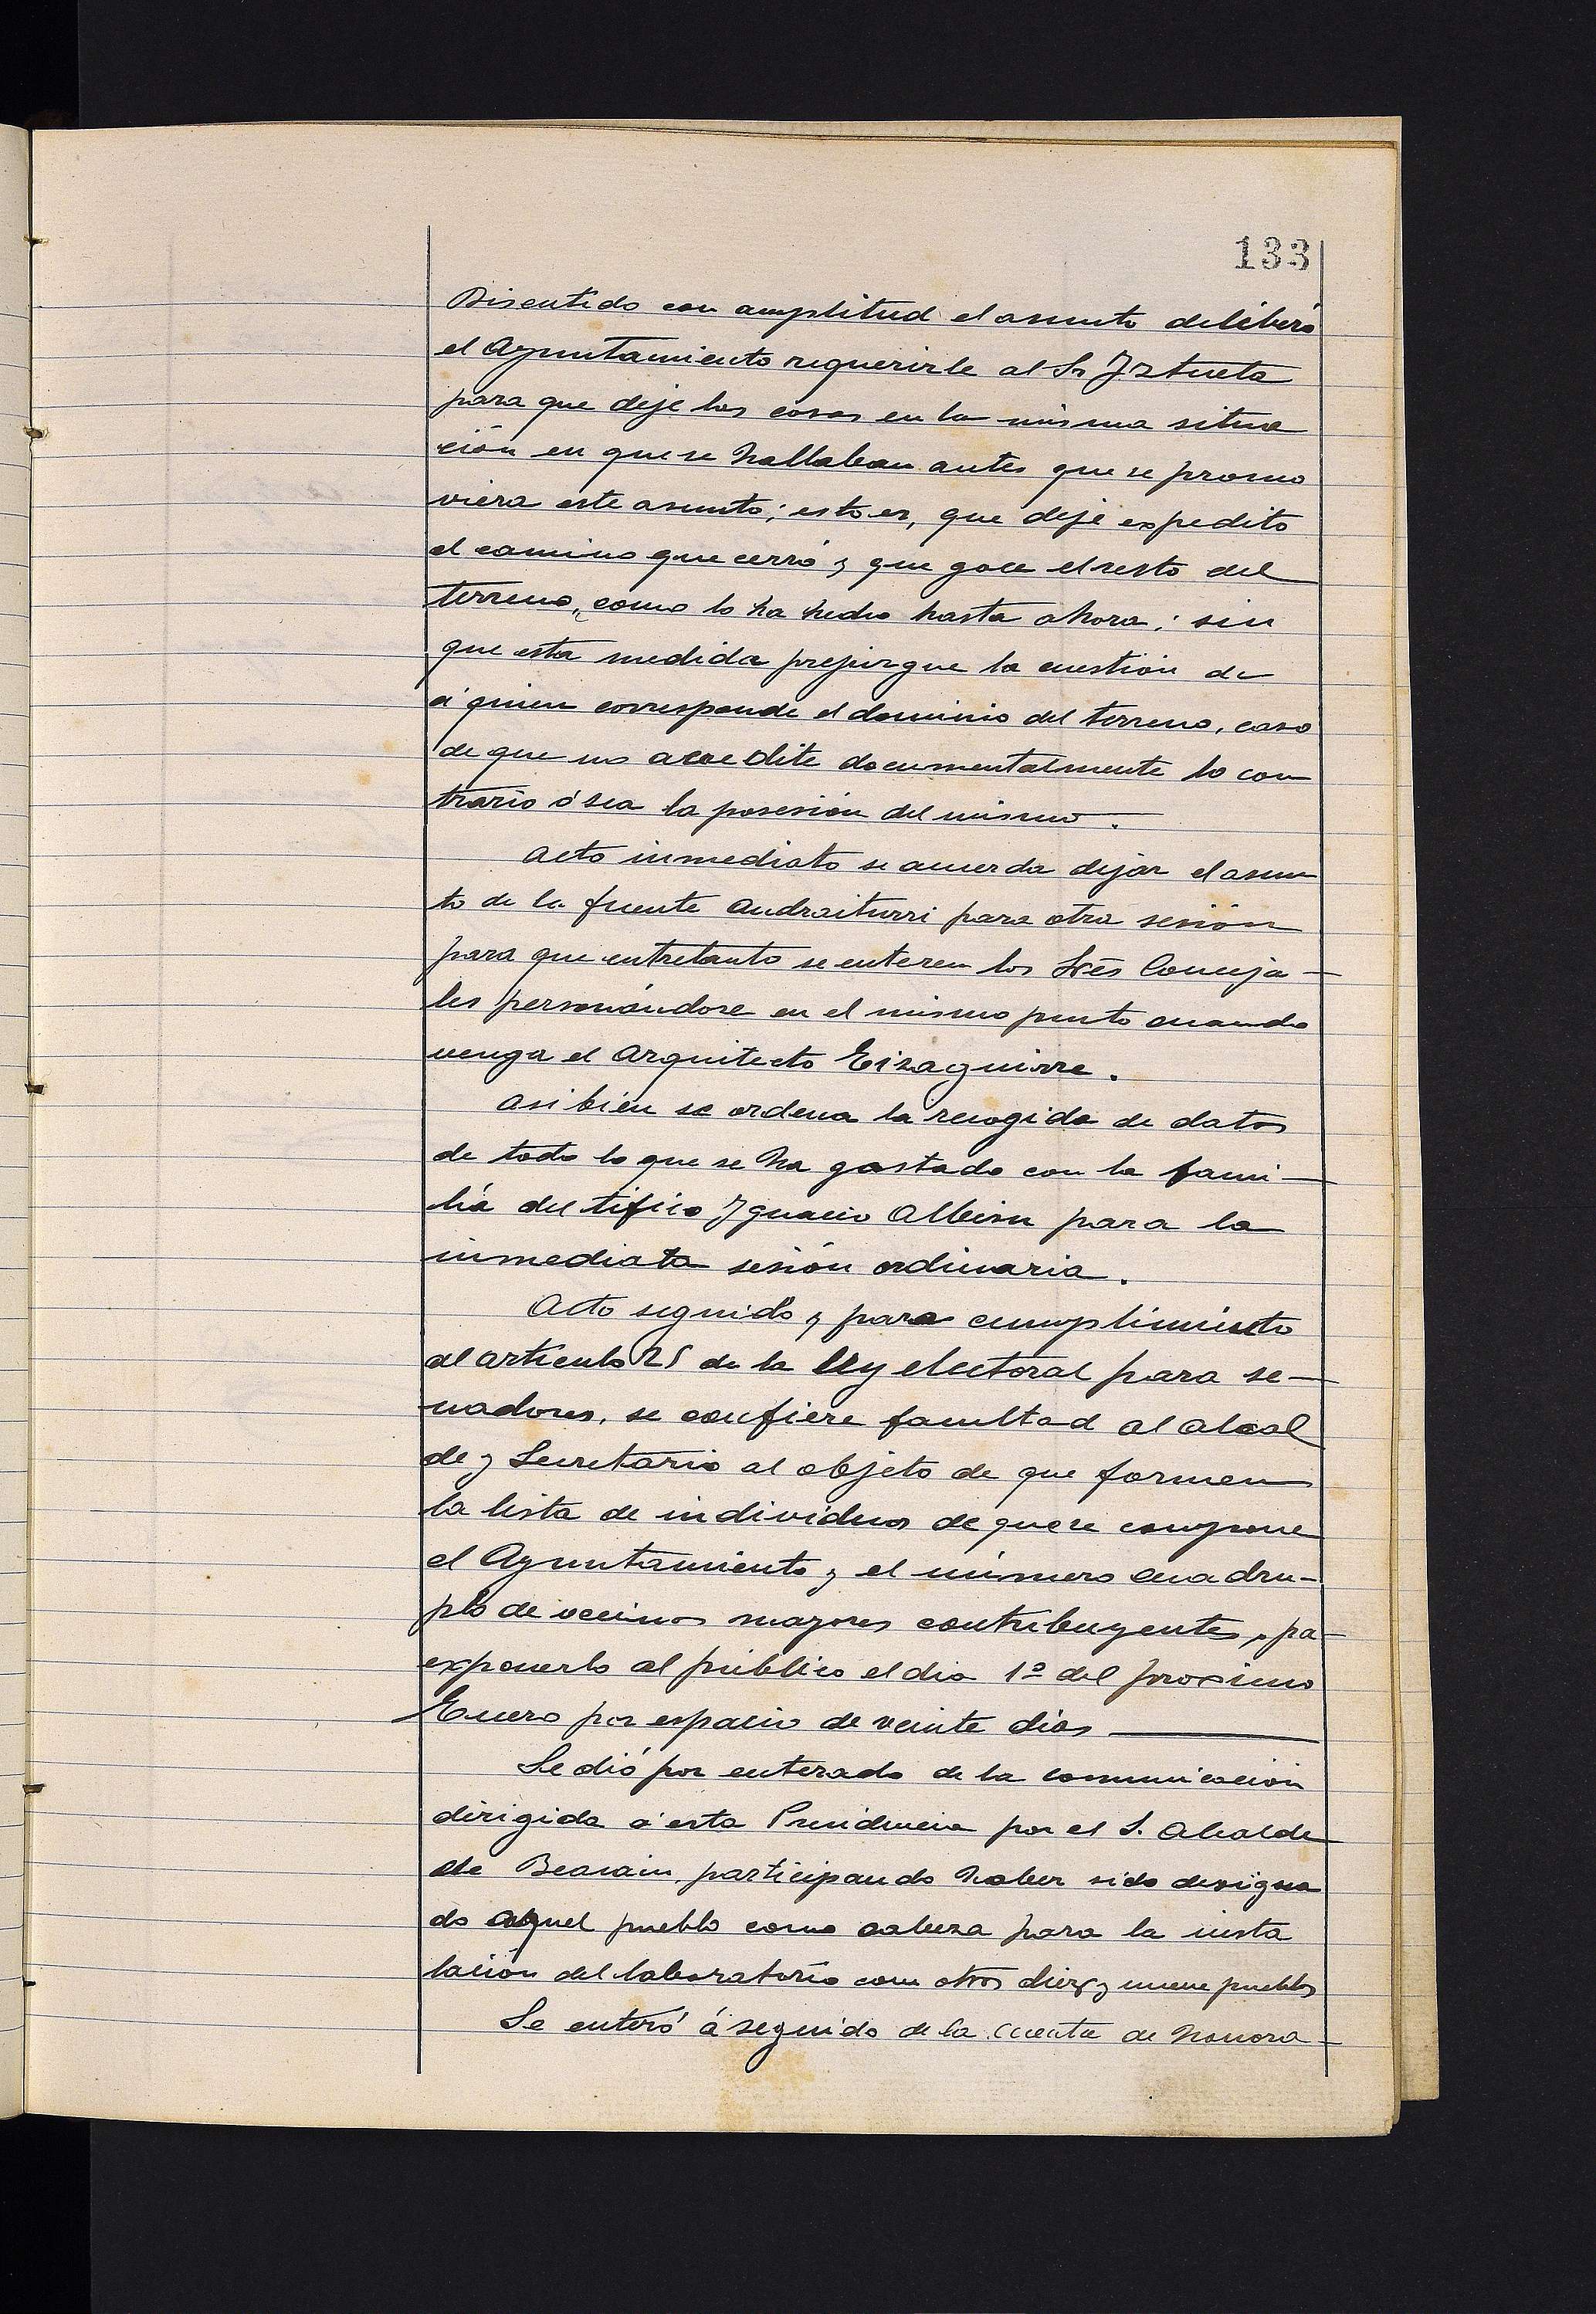 133
Discutido con amplitud el asunto deliberó
el Ayuntamiento requerirle al Sr Iztueta
para que deje las cosas en la misma situa
ción en que se hallaban antes que se promo
viera este asunto; esto es, que deje expedito
el camino que cerró y que goce el resto del
terreno, como lo ha hecho hasta ahora; sin
que esta medida prejuzgue la cuestión de
á quien corresponde el dominio del terreno, caso
de que no acredite documentalmente lo con
trario ó sea la posesión del mismo.
Acto inmediato se acuerda dejar el asun
to de la fuente Andraiturri para otra sesión
para que entretanto se enteren los Sres Conceja-
les personándose en el mismo punto cuando
venga el Arquitecto Eizaguirre.
Asi bién se ordena la recogida de datos
de todo lo que se ha gastado con la fami-
lia del tifico Ignacio Albisu para la
inmediata sesión ordinaria.
Acto seguido y para cumplimiento
al articulo 25 de la ley electoral para se-
nadores, se confiere facultad al alcal
de y Secretario al objeto de que formen
la lista de individuos de que se compone
el Ayuntamiento y el número cuadru-
plo de vecinos mayores contribuyentes, pa-
exponerlo al público el dia 1º del proximo
Enero por espacio de veinte dias
Se dió por enterado de la comunicación
dirigida á esta Presidencia por el S. Alcalde
de Beasain, participando haber sido designa
do aquel pueblo como cabeza para la insta
lación del laboratorio con otros diez y nueve pueblos
Se enteró á seguido de la cuenta de honora-